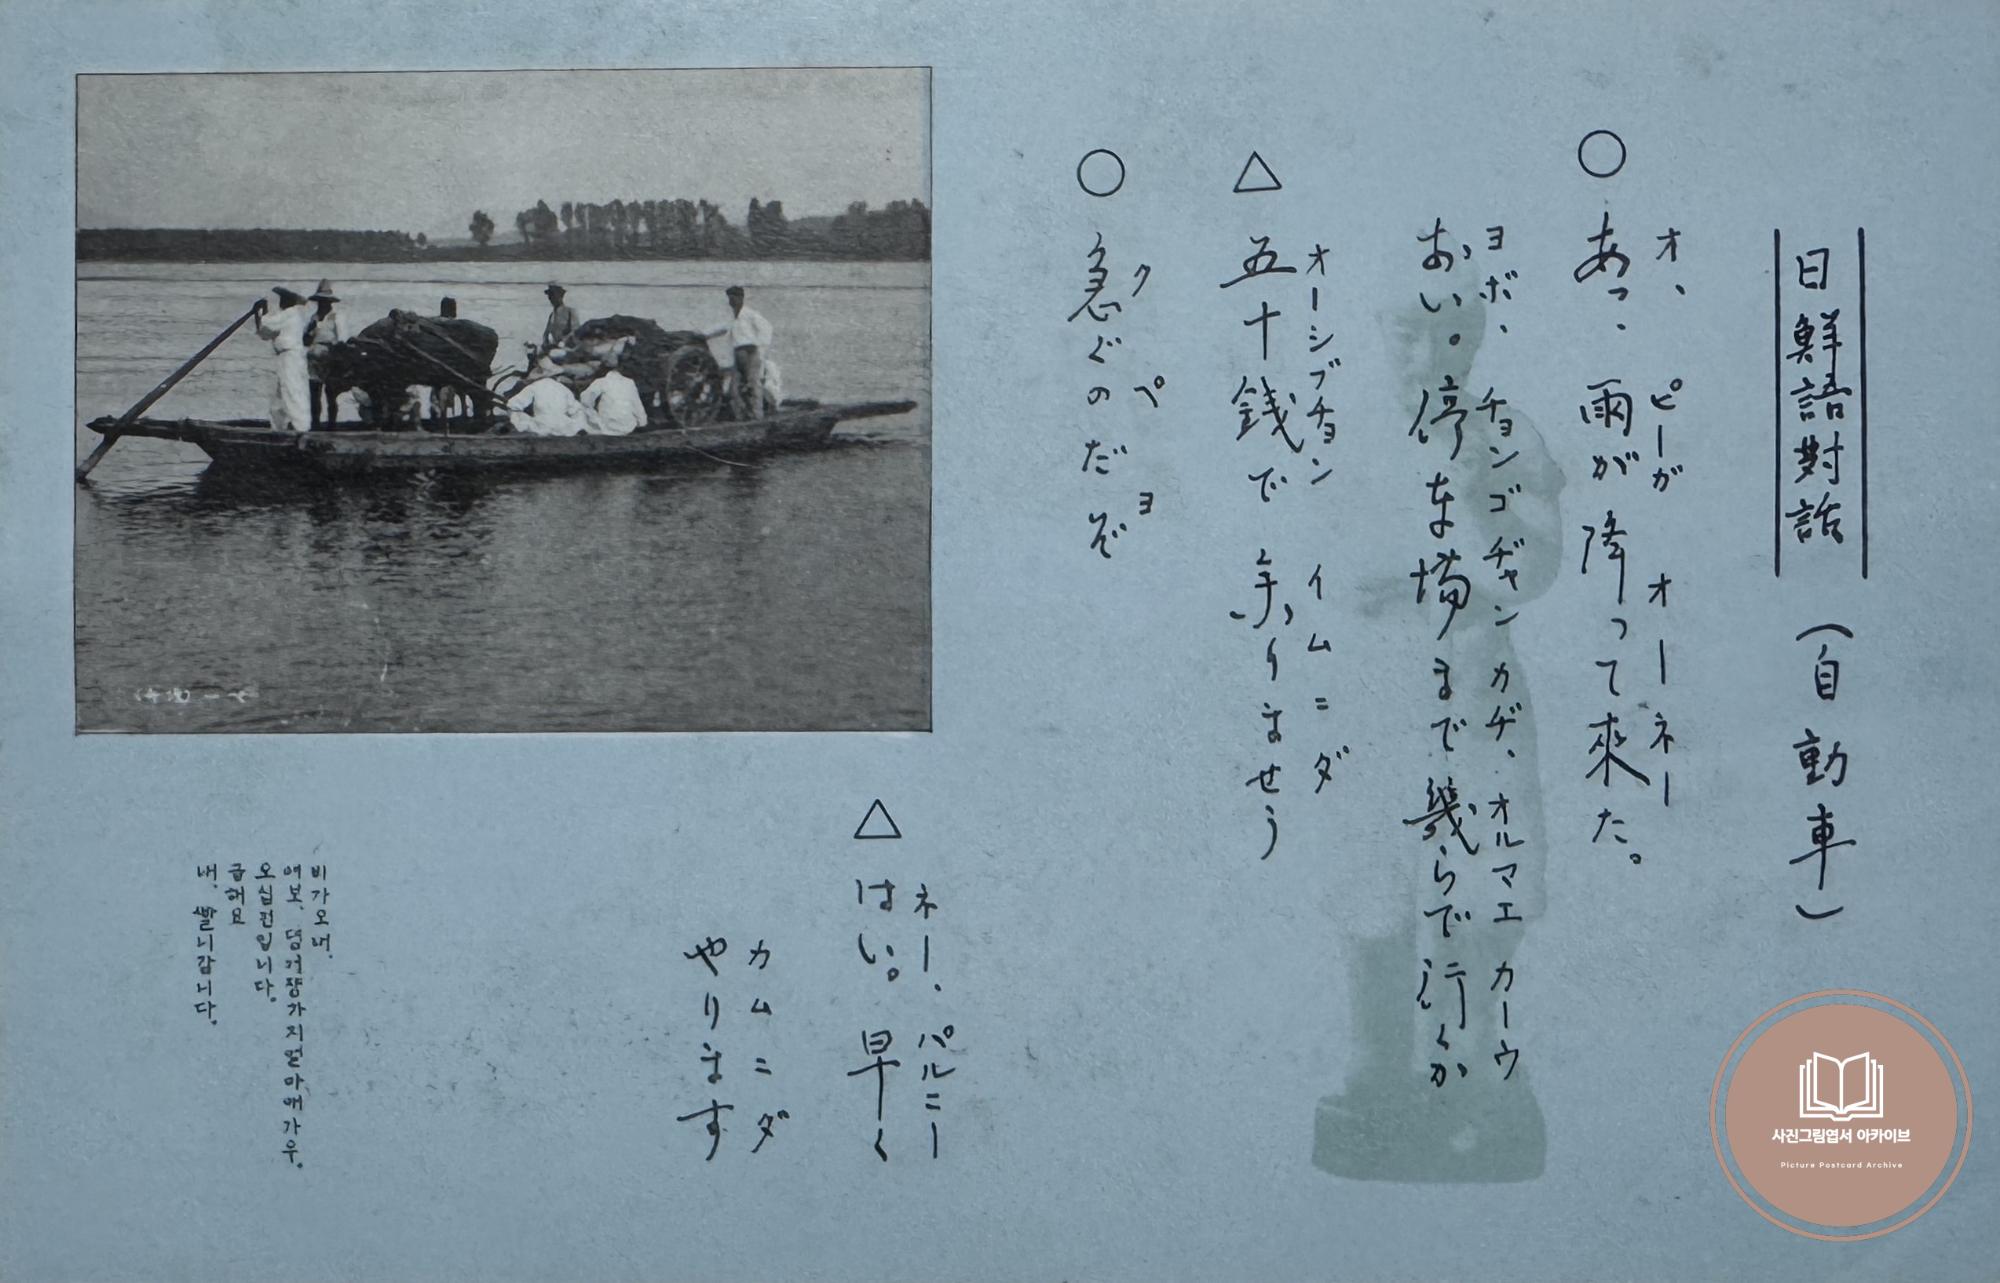 日鮮語對話（自動車）
オ、ピーガ オーネー
○あっ、雨が降って來た。
ヨボ、チョンゴヂャン カヂ、オルマエ カーウ
おい。停車場まで幾らで行くか
オーシブチョン イムニダ
△五十銭で参りませう
クペヨ
○急ぐのだぞ
ネー、パルニー
△はい。早く
カムニダ
やります
비가오내.
여보、뎡거쟝가지얼마에가우.
오십전입니다.
급해요
내. 빨니갑니다.
사진그림엽서 아카이브
Picture Postcard Archive